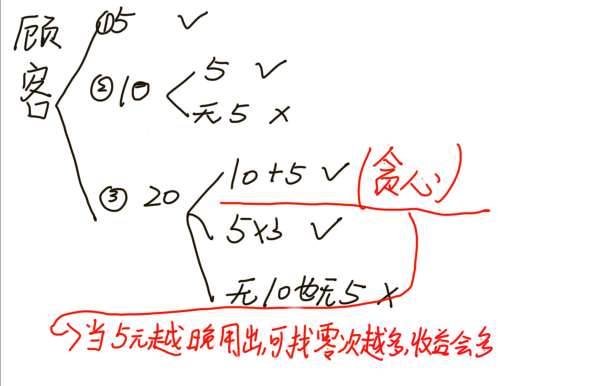 顾客
①5 ✓
②10
5 ✓
无5 ×
③ 20
10+5 ✓ (贪心)
5×3 ✓
无10也无5 ×
当5元越晚用出,可找零次越多,收益会多